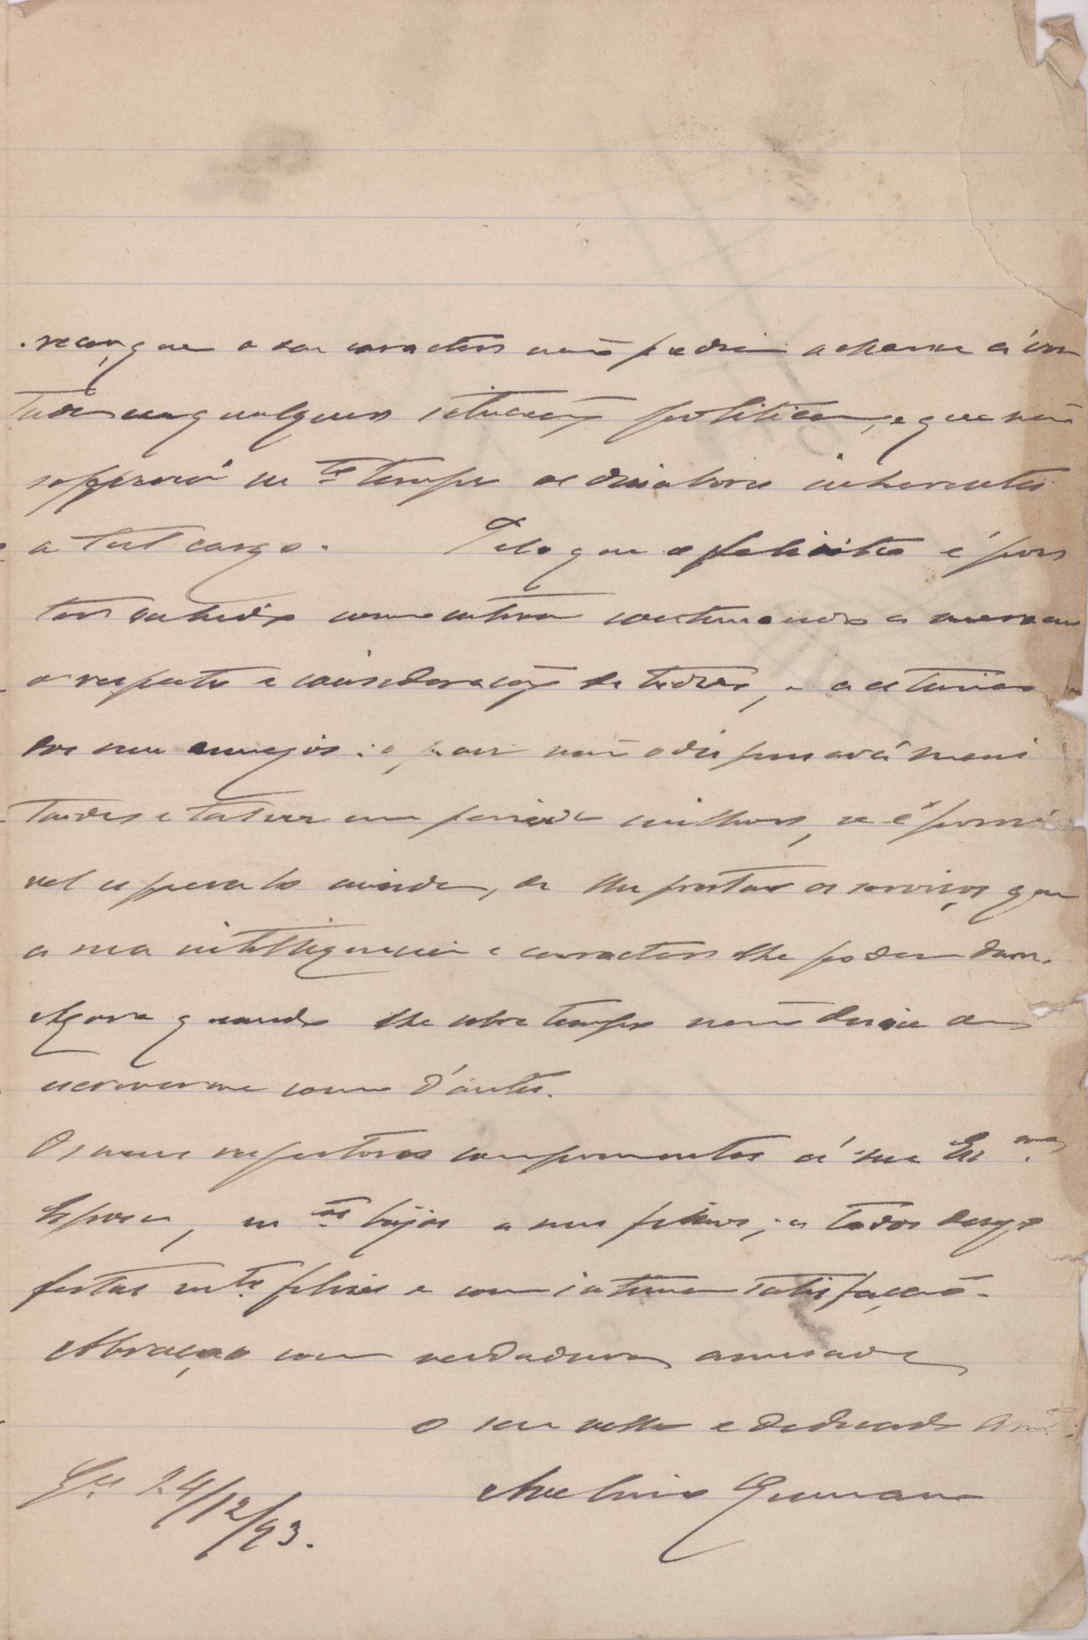 que o seu caracter não podia achar-se á von
tade em qualquer situação politica, e que não
soffrerá m.to tempo os dissabores inherentes
a tal cargo. Pelo que o felicito é por
ter sahido como entrou continuando a merecer
o respeito e consideração de todos, e a estima
dos seus amigos: o paiz não o dispensará mais
tarde e talvez em periodo melhor, se é possi
vel esperal-o ainda, de lhe prestar os serviços que
a sua intelligencia e caracter lhe podem dar.
Agora quando lhe sobre tempo não deixe de
escrever-me como d'antes.
Os meus respeitosos comprimentos á sua Ex.ma
Esposa, m.tos beijos a seus filhos; e a todos desejo
festas m.to felizes e com intima satisfação.
Abraça-o com verdadeira amisade
o seu velho e dedicado Am.o
Avelino Germano
24/12/93.